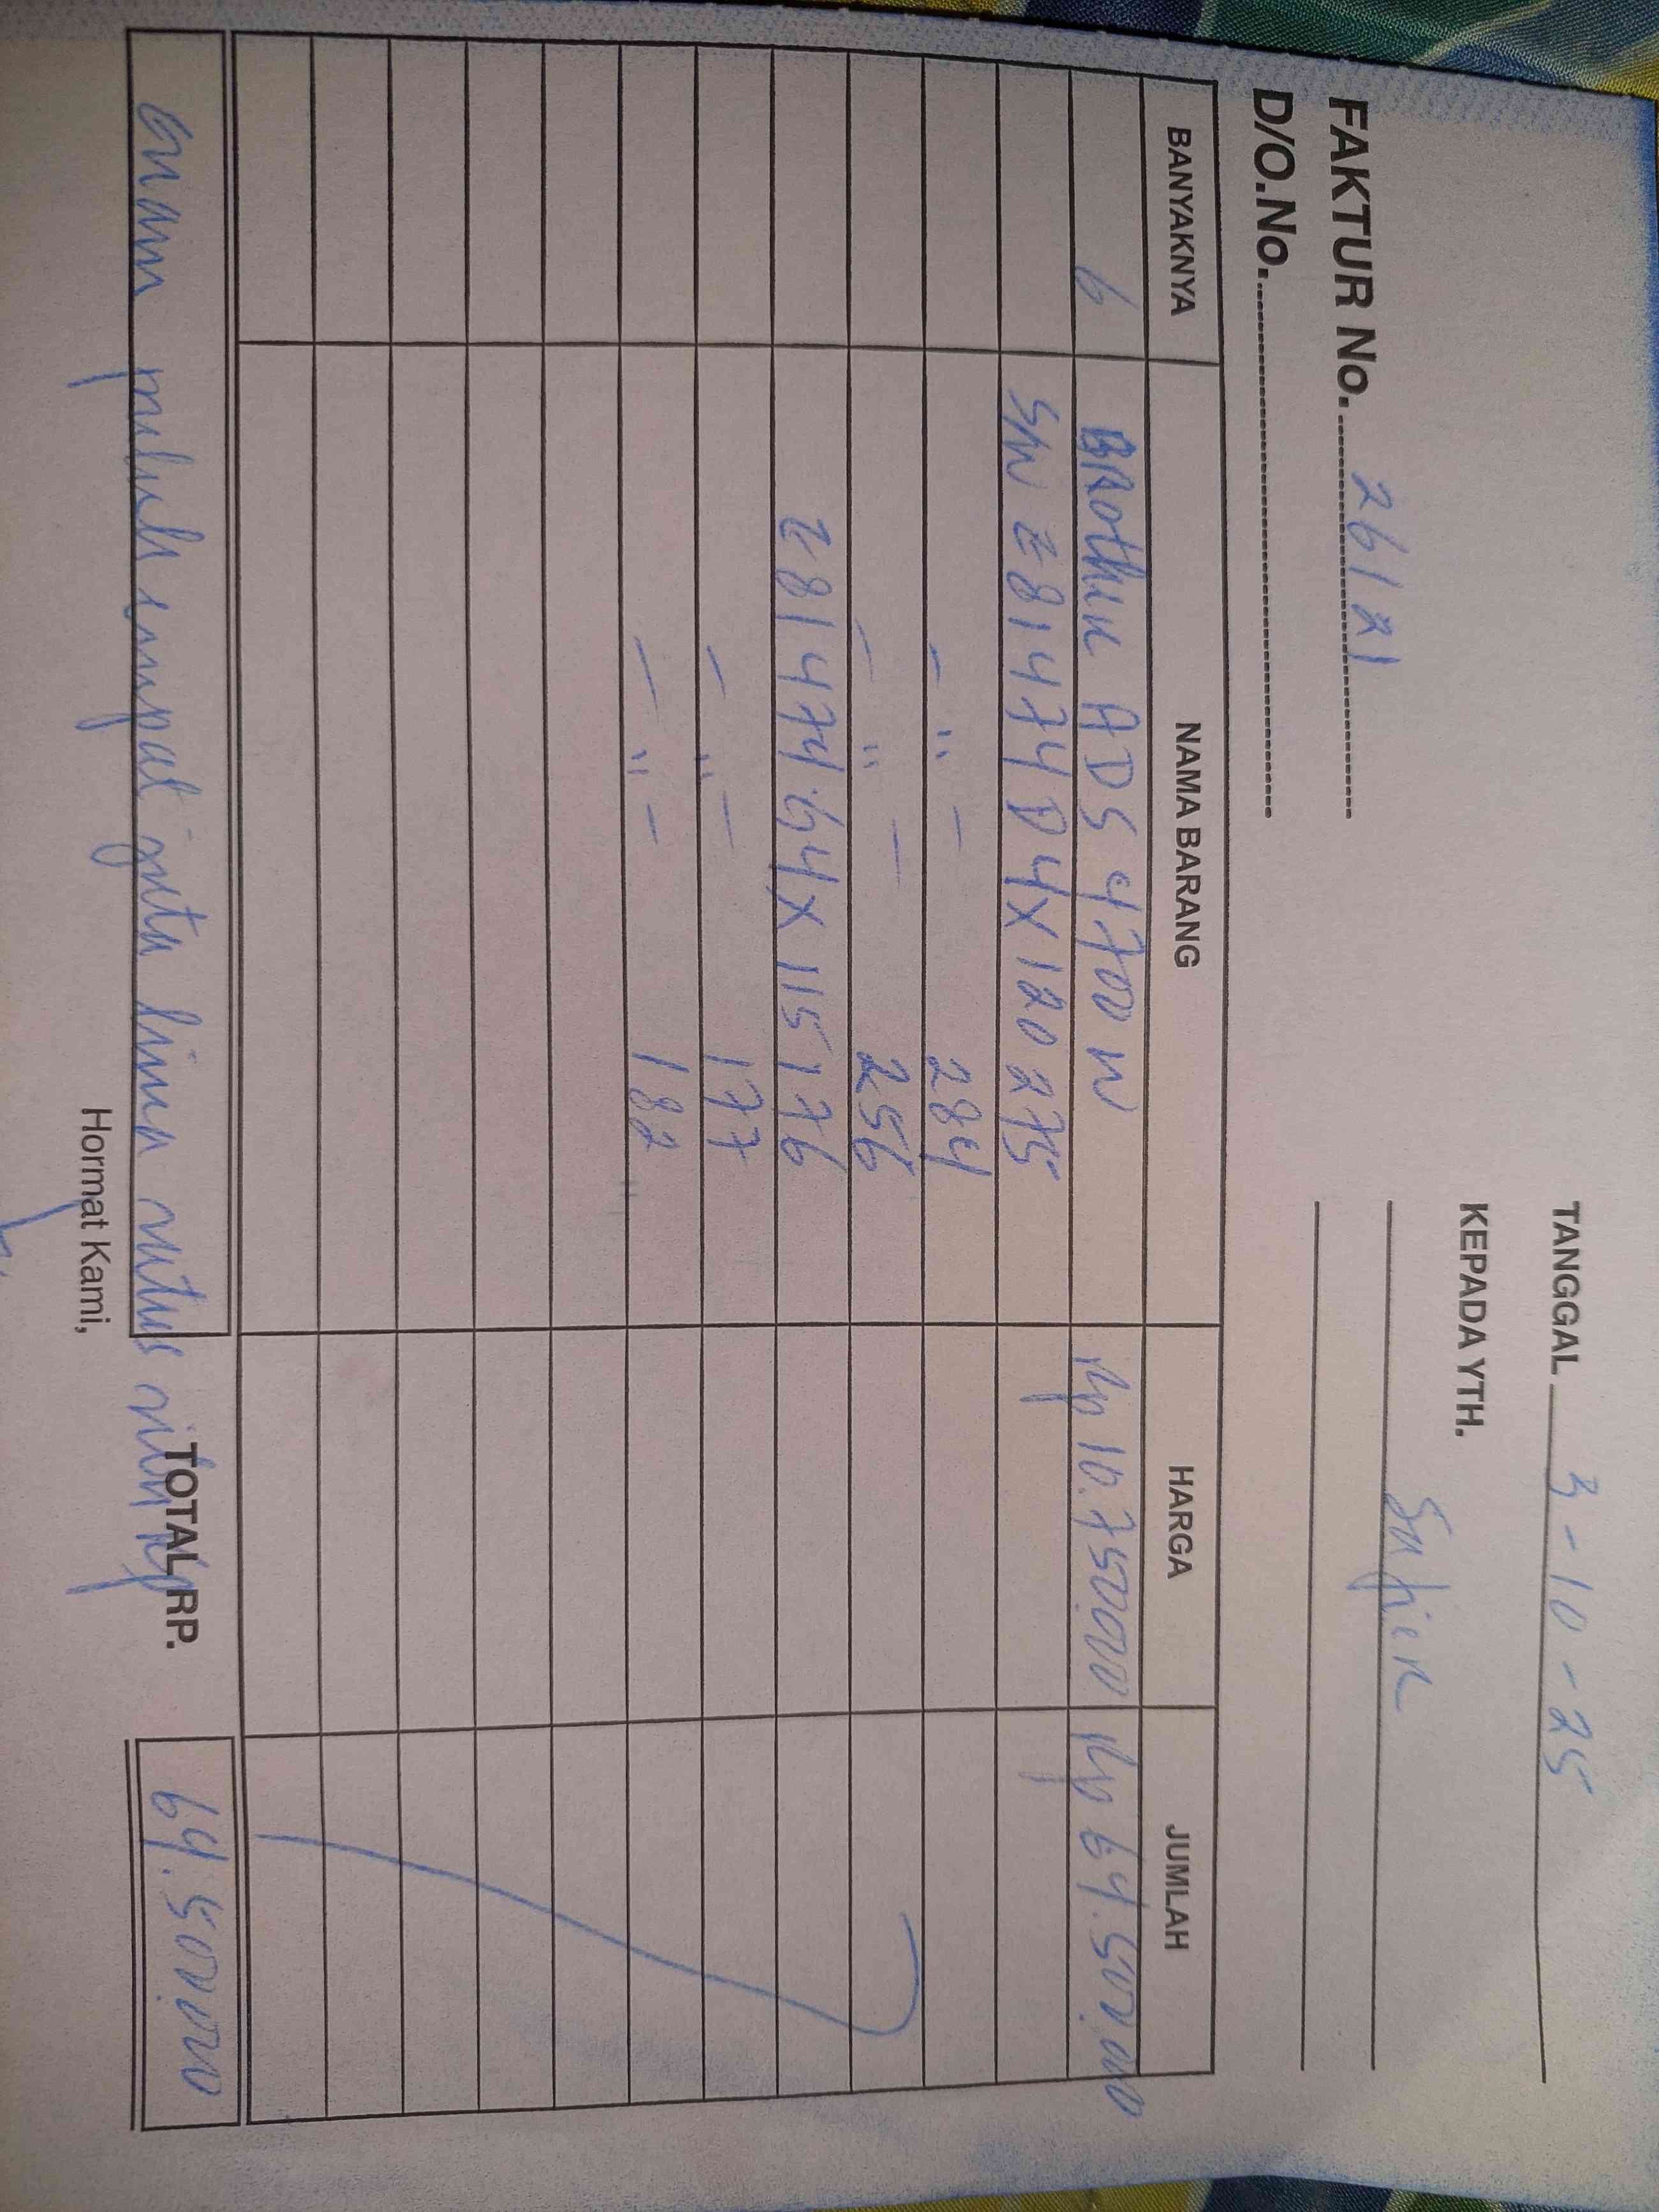 TANGGAL 3-10-25
FAKTUR No. 26121
KEPADA YTH.
D/O.No.
BANYAKNYA NAMA BARANG HARGA JUMLAH
6 BROther ADS 4700 W Rp 10.750.000 Rp 64.500.000
S/N E81474D4X120275
— " — 284
— " — 256
E81474G4X115176
— " — 177
— " — 182
enam puluh empat juta lima ratus ribu rp TOTAL RP. 64.500.000
Hormat Kami,